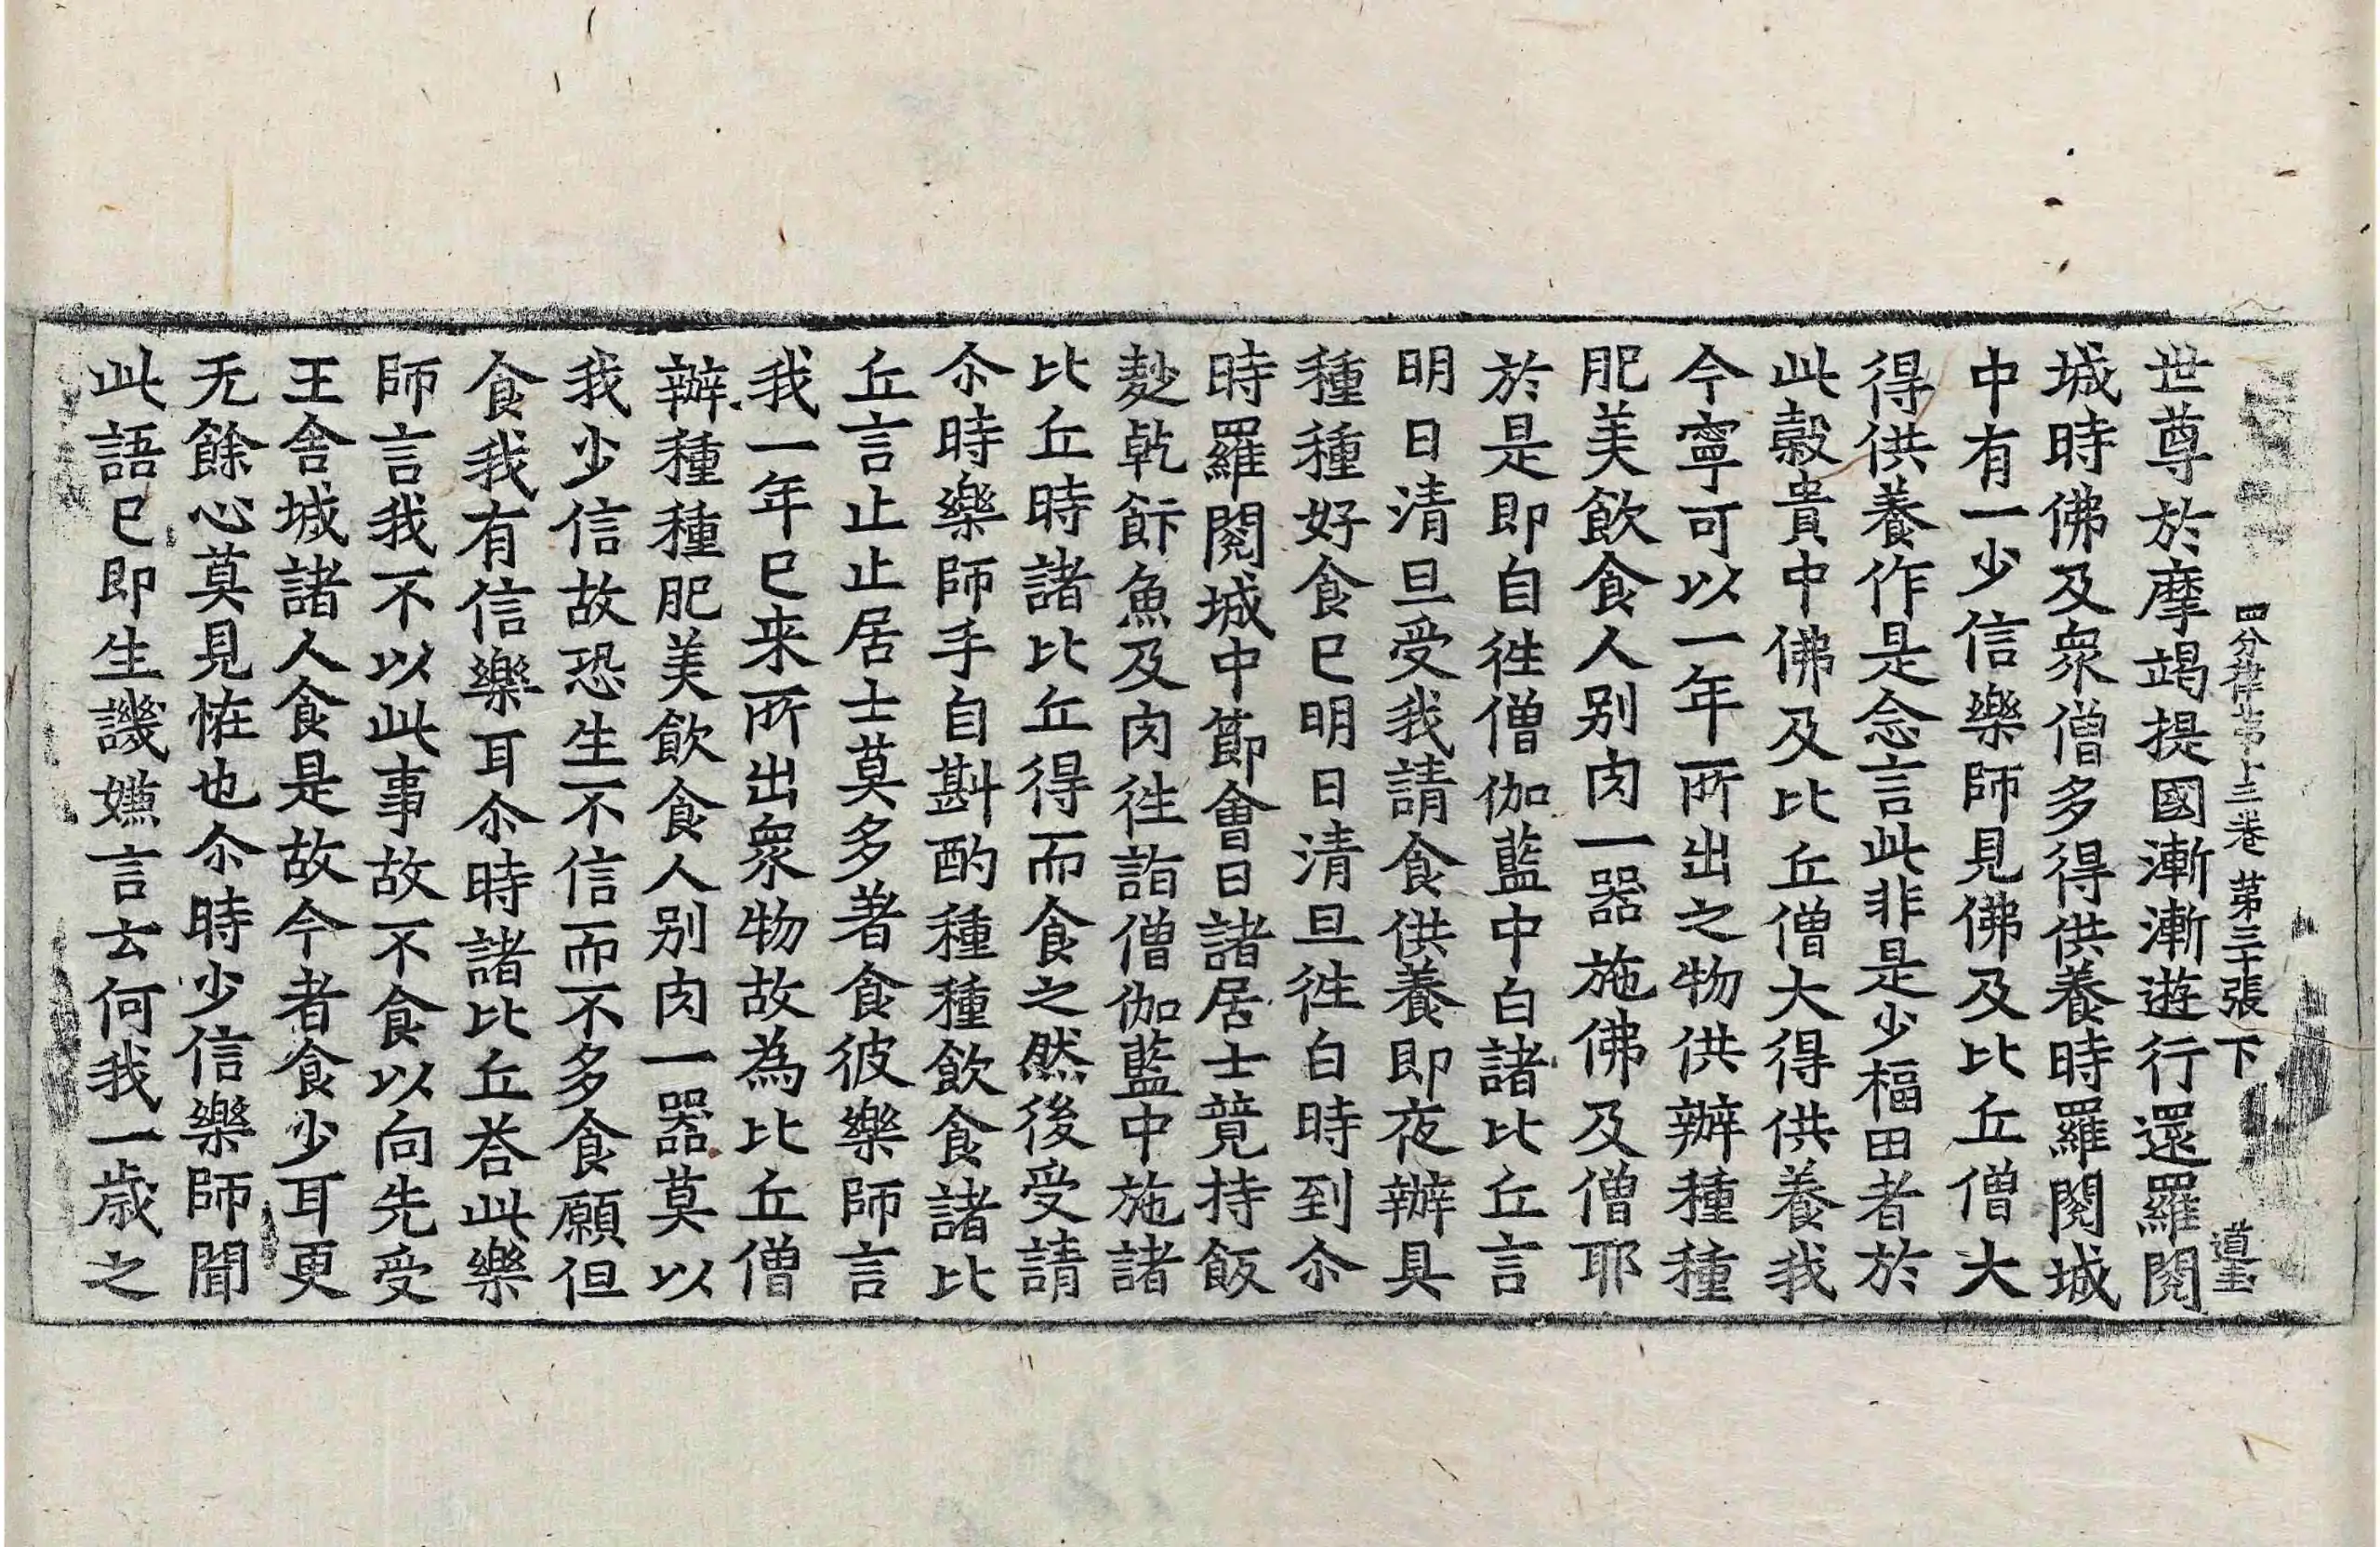 四分律第十三卷 第三十張 下 道玉
世尊於摩竭提國漸漸遊行還羅閱
城時佛及衆僧多得供養時羅閱城
中有一少信樂師見佛及比丘僧大
得供養作是念言此非是少福田者於
此穀貴中佛及比丘僧大得供養我
今寧可以一年所出之物供辦種種
肥美飲食人別肉一器施佛及僧耶
於是即自徃僧伽藍中白諸比丘言
明日清旦受我請食供養即夜辦具
種種好食已明日清旦徃白時到尒
時羅閱城中節會日諸居士競持飯
麨乾餅魚及肉徃詣僧伽藍中施諸
比丘時諸比丘得而食之然後受請
尒時樂師手自斟酌種種飲食諸比
丘言止止居士莫多著食彼樂師言
我一年已来所出衆物故為比丘僧
辦種種肥美飲食人別肉一器莫以
我少信故恐生不信而不多食願但
食我有信樂耳尒時諸比丘荅此樂
師言我不以此事故不食以向先受
王舍城諸人食是故今者食少耳更
无餘心莫見恠也尒時少信樂師聞
此語已即生譏嫌言云何我一歲之